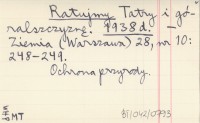 Ratujmy Tatry i gó-
ralszczyznę. 1938 d.
Ziemia (Warszawa) 28, nr 10:
248-249.
Ochrona przyrody.
MT
BT/042/0793